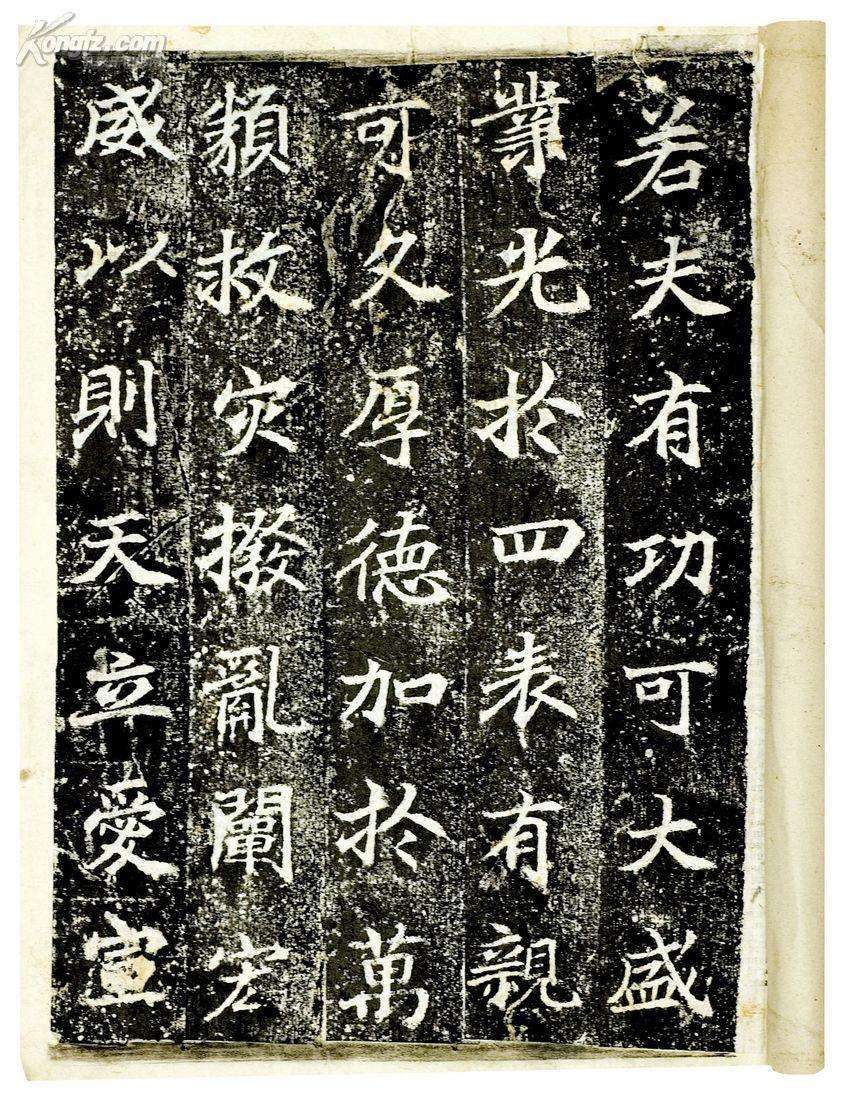 若夫有功可大盛
業光於四表有親
可久厚德加於萬
類救灾撥亂闡宏
威以則天立愛宣
Kongfz.com